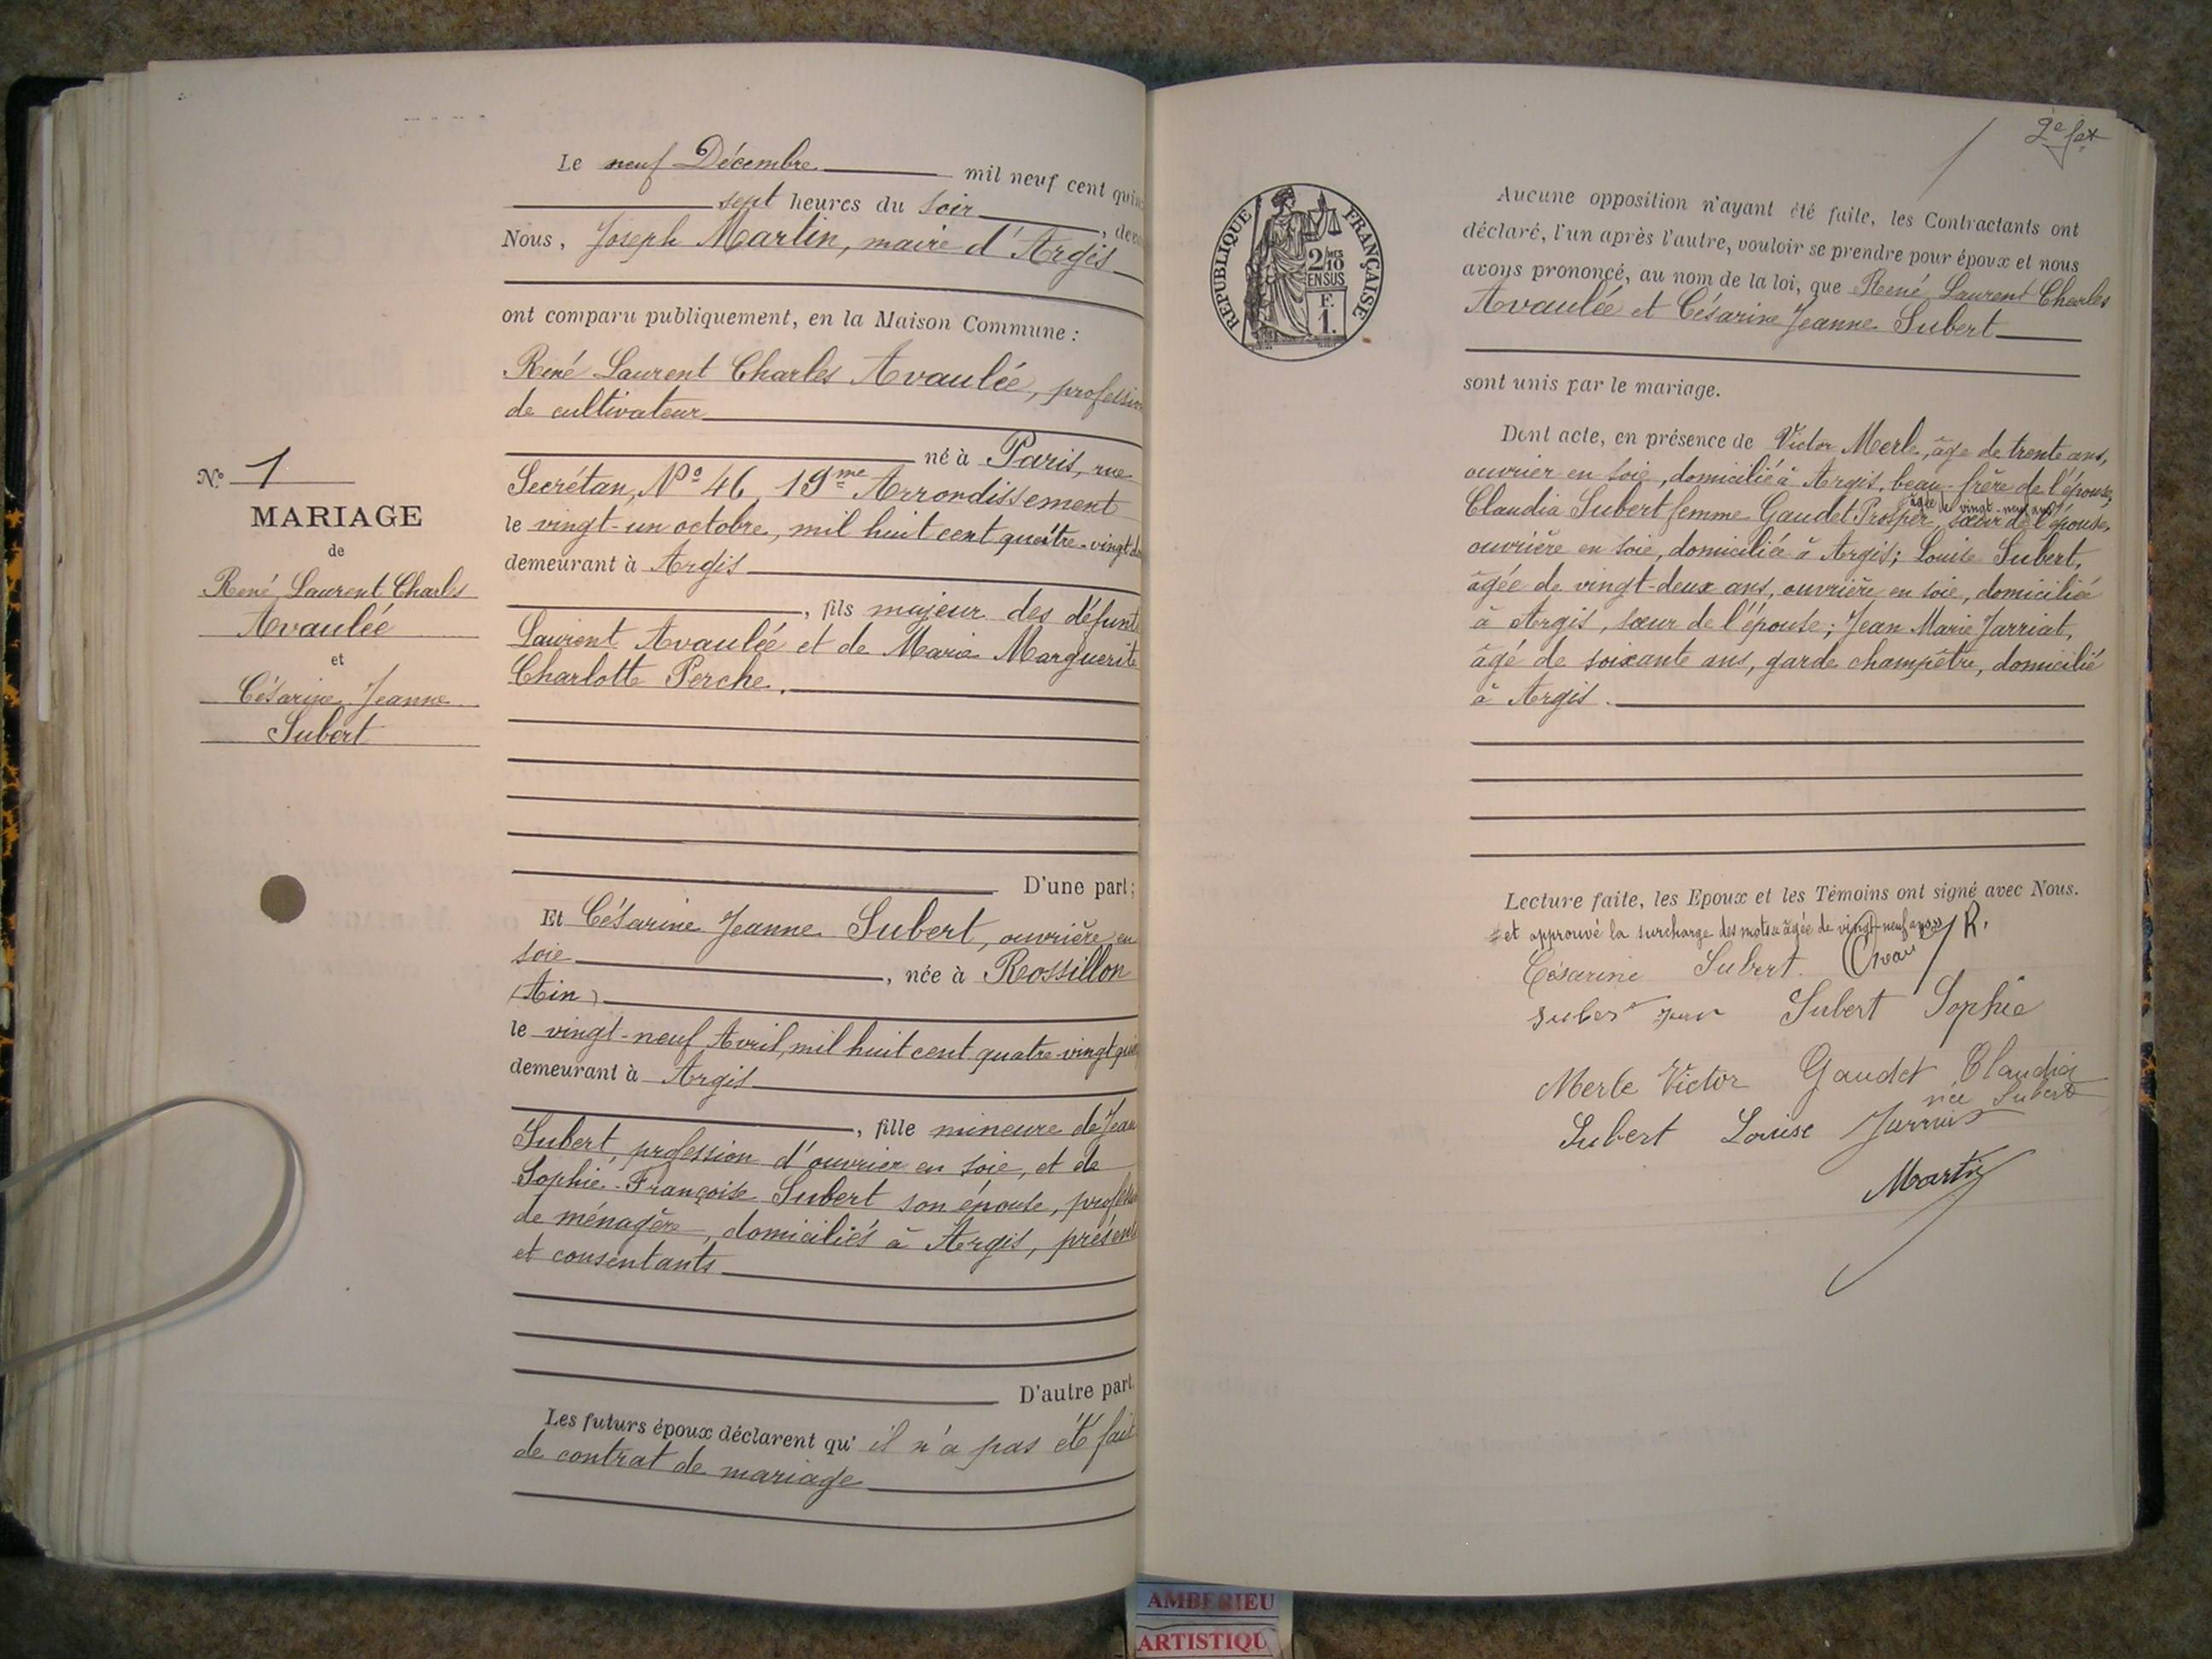 Le neuf Décembre mil neuf cent
sept heures du soir
Nous, Joseph Martin, maire d'Argis
ont comparu publiquement, en la Maison Commune :
René Laurent Charles Avaulée, profession
de cultivateur
né à Paris, rue
Secrétan, Nº 46, 19me Arrondissement
le vingt-un octobre, mil huit cent quatre-vingt
demeurant à Argis
, fils majeur des défunts
Laurent Avaulée et de Marie Marguerite
Charlotte Perche.
D'une part ;
Et Césarine Jeanne Subert, ouvrière en
soie, née à Rossillon
(Ain)
le vingt-neuf Avril, mil huit cent quatre-vingt
demeurant à Argis
, fille mineure de Jean
Subert, profession d'ouvrier en soie, et de
Sophie-Françoise Subert son épouse,
de ménagère, domiciliés à Argis, présents
et consentants
D'autre part.
Les futurs époux déclarent qu'il n'a pas été fait
de contrat de mariage
Nº 1
MARIAGE
de
René Laurent Charles
Avaulée
et
Césarine Jeanne
Subert
REPUBLIQUE FRANÇAISE
2/10
EN SUS
F.
1.
2e
Aucune opposition n'ayant été faite, les Contractants ont
déclaré, l'un après l'autre, vouloir se prendre pour époux et nous
avons prononcé, au nom de la loi, que René Laurent Charles
Avaulée et Césarine Jeanne Subert
sont unis par le mariage.
Dont acte, en présence de Victor Merle, âge de trente ans,
ouvrier en soie, domicilié à Argis, beau-frère de l'épouse,
âgée de vingt-neuf ans
Claudia Subert femme Gaudet Prosper, sœur de l'épouse,
ouvrière en soie, domiciliée à Argis; Louise Subert,
âgée de vingt-deux ans, ouvrière en soie, domiciliée
à Argis, sœur de l'épouse; Jean Marie Jarriat,
âgé de soixante ans, garde champêtre, domicilié
à Argis.
Lecture faite, les Epoux et les Témoins ont signé avec Nous.
et approuvé la surcharge des mots « âgée de vingt-neuf ans »
Césarine Subert. R.
Subert Sophie
Merle Victor Gaudet Claudia
née Subert
Subert Louise
Martin
AMBERIEU
ARTISTIQU